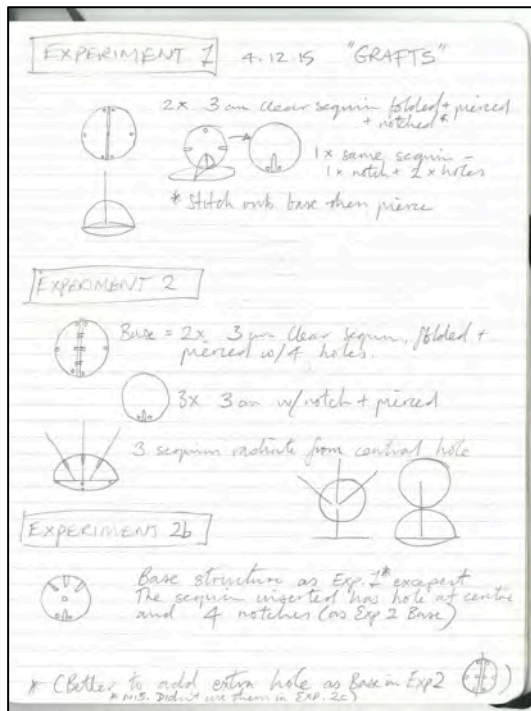 EXPERIMENT 1 4.12.15 "GRAFTS"
2x 3 cm clear sequin folded + pierced
+ notched*
1 x same sequin -
1 x notch + 2 x holes
* Stitch onto base then pierce
EXPERIMENT 2
Base = 2x 3 cm clear sequin, folded +
pierced w/ 4 holes.
3x 3 cm w/ notch + pierced
3 sequins radiate from central hole
EXPERIMENT 2b
Base structure as Exp. 1* excepert
The sequin inserted has hole at centre
and 4 notches (as Exp 2 Base)
* (Better to add extra hole as Base in Exp 2 )
* NB. Didn't use them in EXP. 2c)